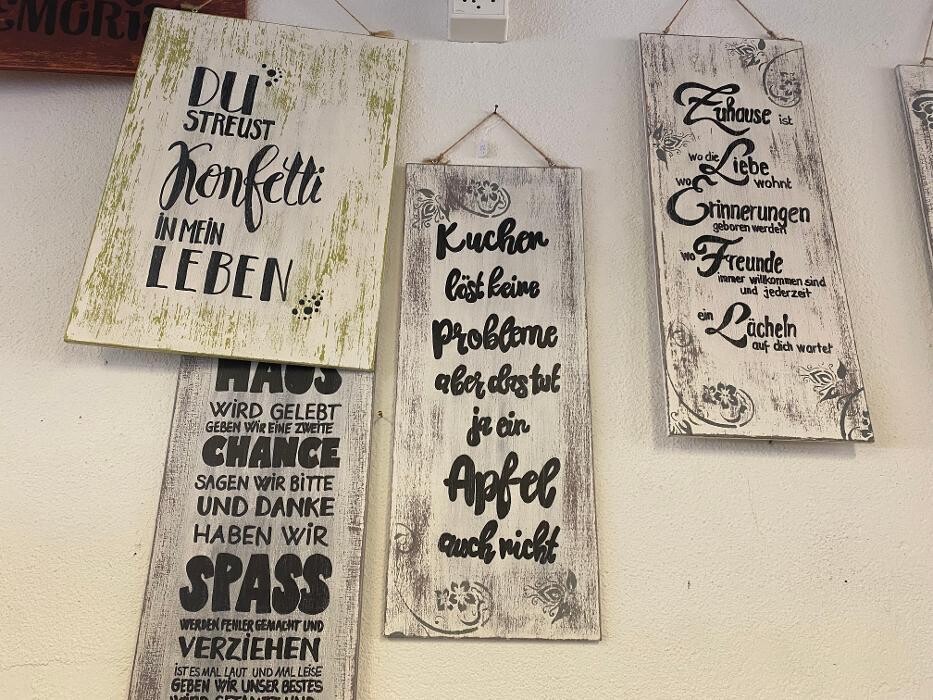 DU
STREUST
Konfetti
IN MEIN
LEBEN
HAUS
WIRD GELEBT
GEBEN WIR EINE ZWEITE
CHANCE
SAGEN WIR BITTE
UND DANKE
HABEN WIR
SPASS
WERDEN FEHLER GEMACHT UND
VERZIEHEN
IST ES MAL LAUT UND MAL LEISE
GEBEN WIR UNSER BESTES
Kuchen
löst keine
Probleme
aber das tut
ja ein
Apfel
auch nicht
Zuhause ist
wo die Liebe
wohnt
wo Erinnerungen
geboren werden
wo Freunde
immer willkommen sind
und jederzeit
ein Lächeln
auf dich wartet